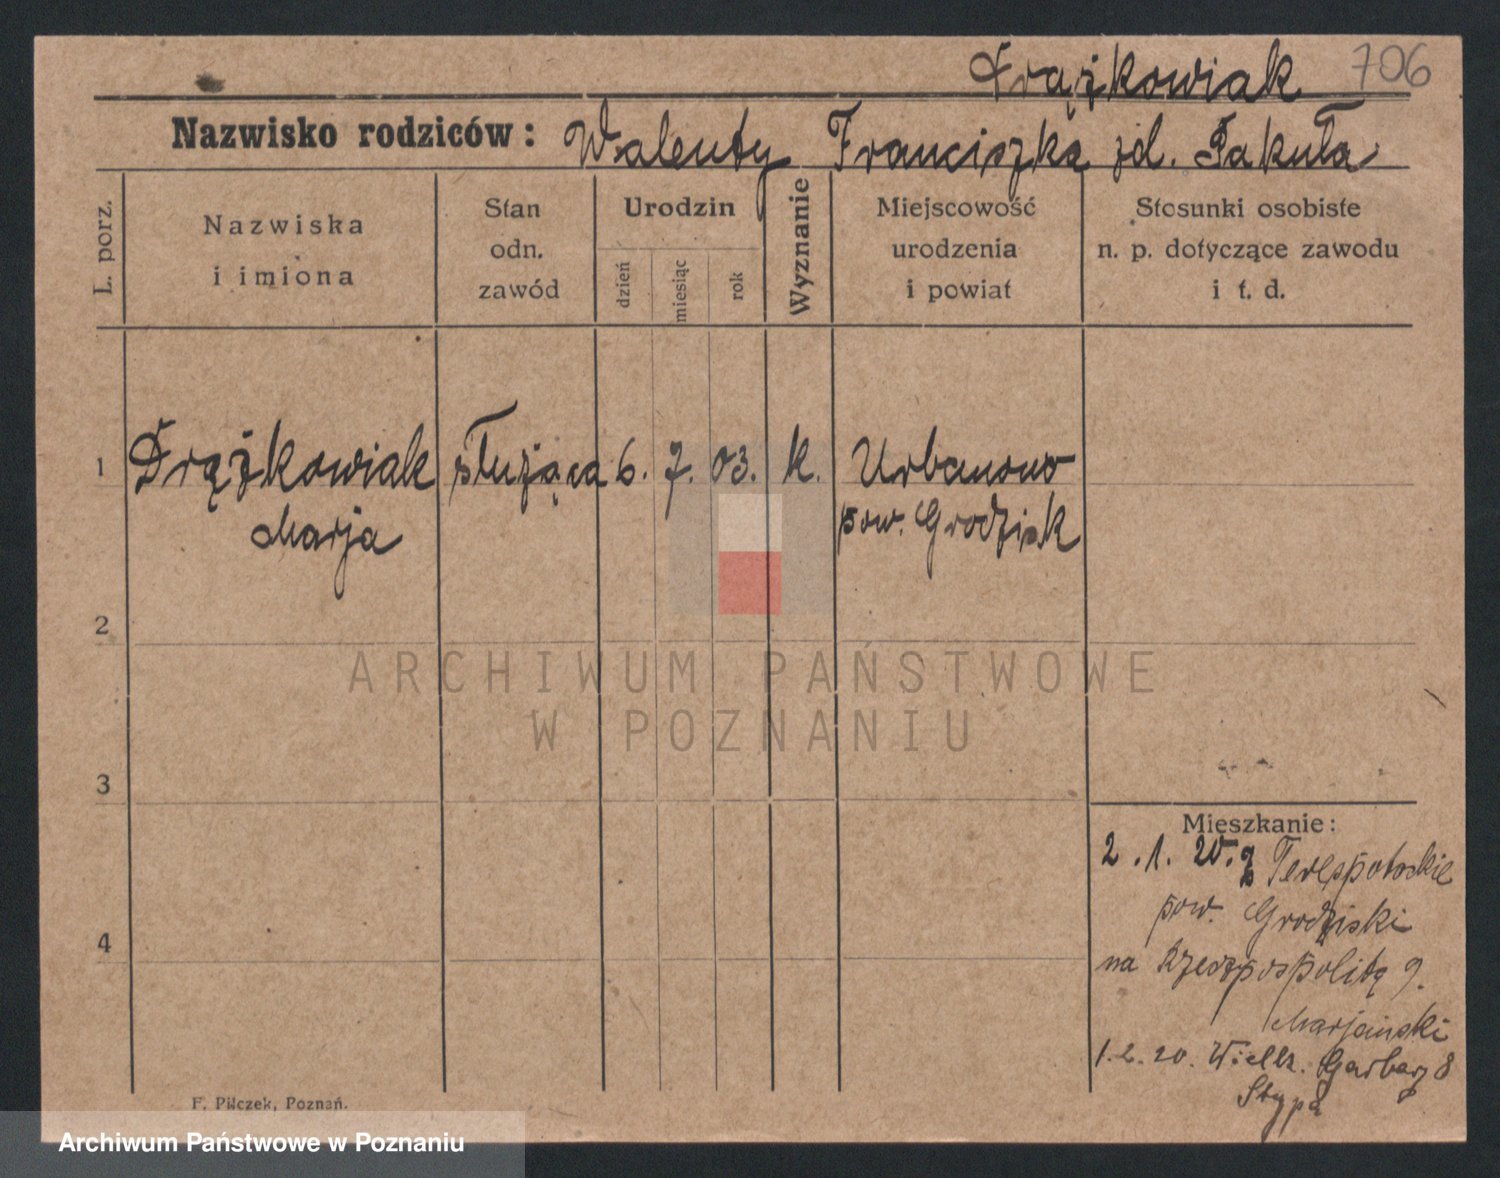 Drążkowiak 706
Nazwisko rodziców: Walenty Franciszka zd. Pakuła
L. porz.
Nazwiska
i imiona
Stan
odn.
zawód
Urodzin
dzień
miesiąc
rok
Wyznanie
Miejscowość
urodzenia
i powiat
Stosunki osobiste
n. p. dotyczące zawodu
i t. d.
1 Drążkowiak służąca 6. 7. 03. k. Urbanowo
Marja pow. Grodzisk
2
ARCHIWUM PAŃSTWOWE
W POZNANIU
3
Mieszkanie:
2. 1. 20. z Terespotockie
pow. Grodziski
4
na Rzeszpospolitą 9.
Marjański
1. 2. 20. Wielk. Garbary 8
Stypa
F. Pilczek, Poznań.
Archiwum Państwowe w Poznaniu